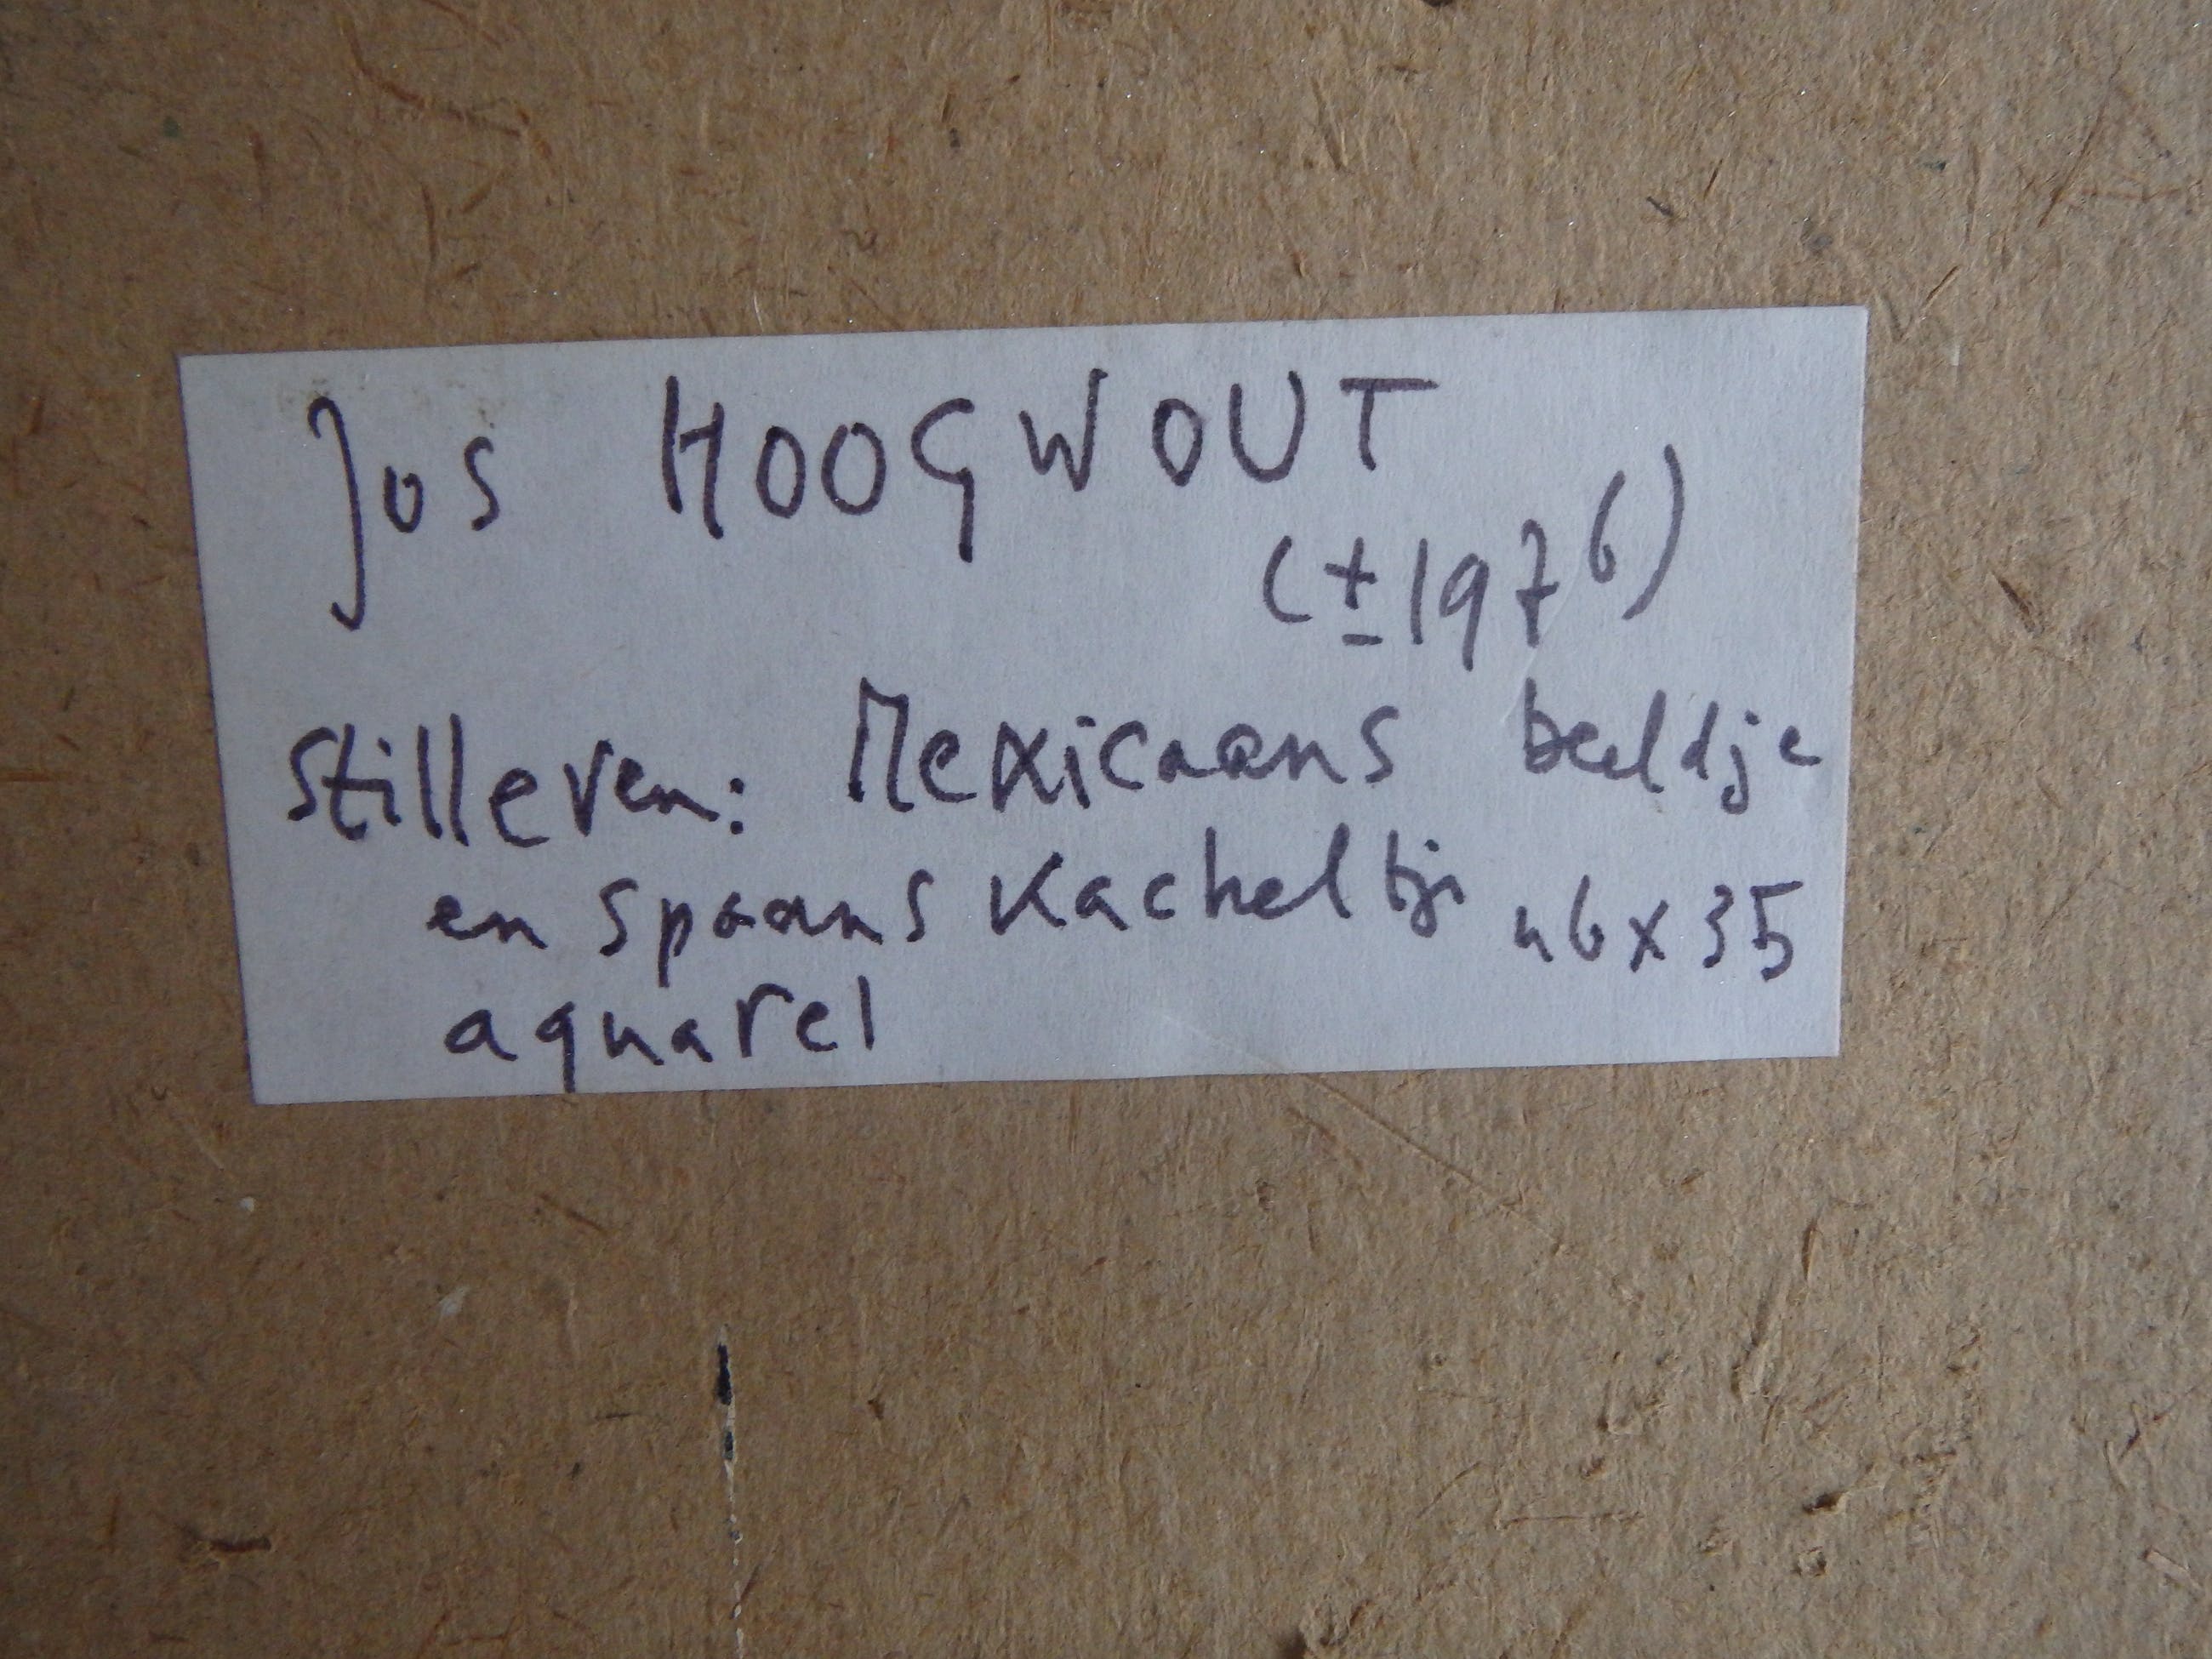 Jos HOOGWOUT
(±1976)
Stilleven: Mexicaans beeldje
en spaans kacheltje 46x35
aquarel